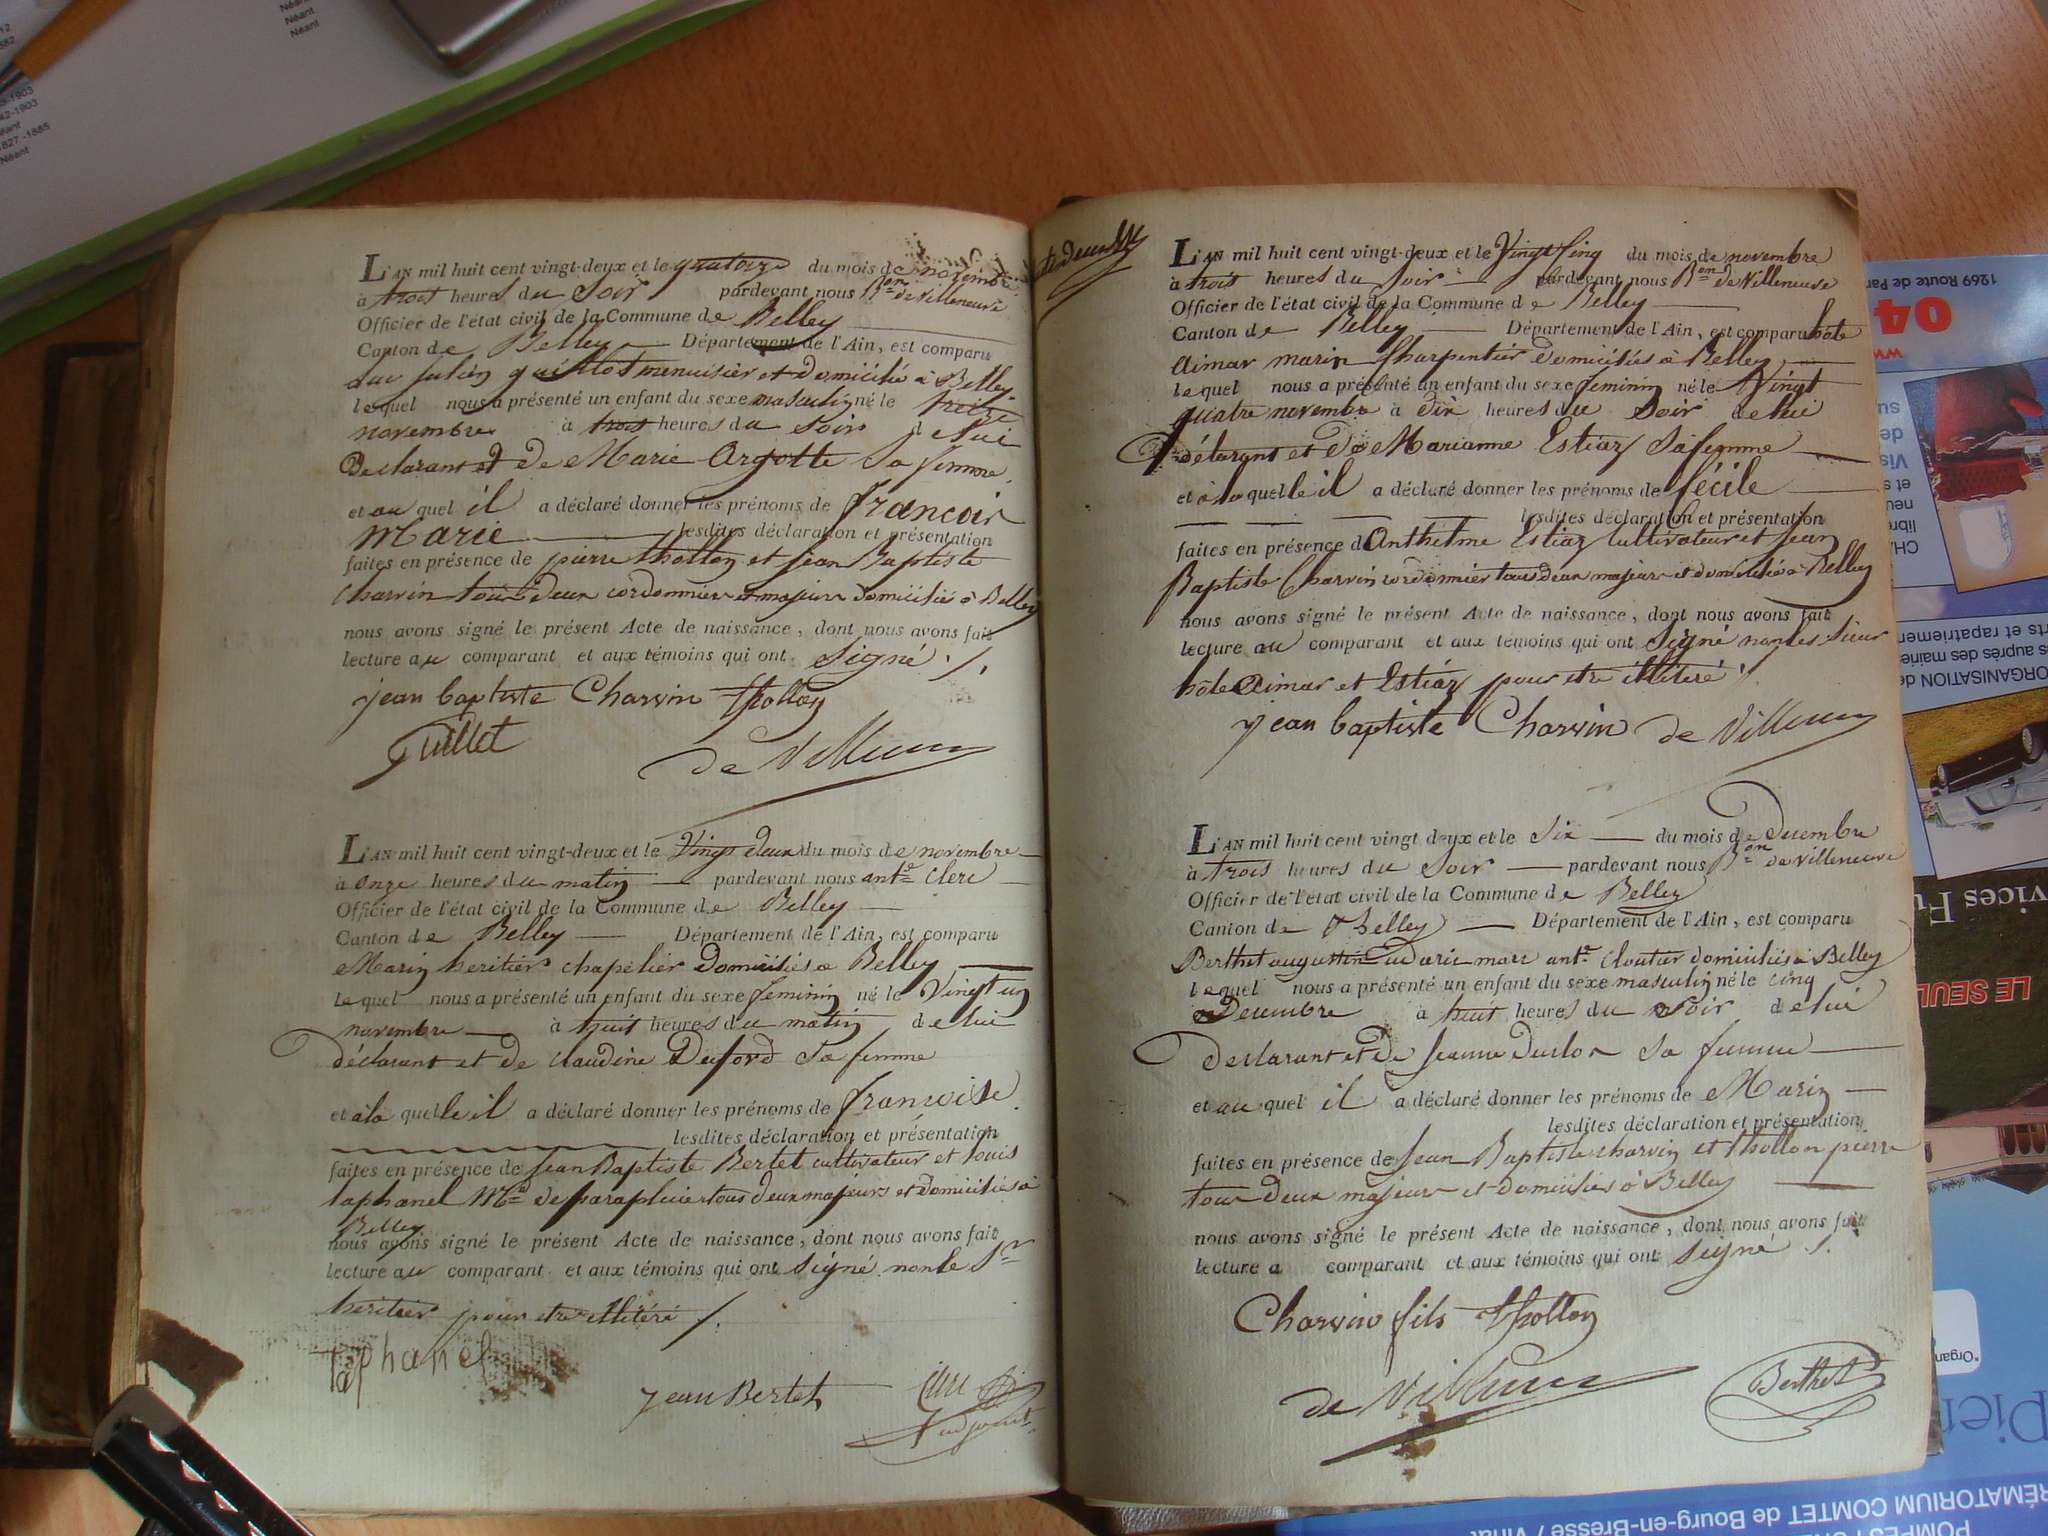 Néant
Néant
Néant
1827-1885
Néant
L'AN mil huit cent vingt-deux et le quatorze du mois de novembre
à trois heures du Soir pardevant nous Bon de Villeneuve
Officier de l'état civil de la Commune de Belley
Canton de Belley Département de l'Ain, est comparu
menuisier et domicilié à Belley
lequel nous a présenté un enfant du sexe masculin né le treize
novembre à trois heures du Soir de lui
Declarant et de Marie Argotte Sa femme
et au quel il a déclaré donner les prénoms de francois
Marie lesdites déclaration et présentation
faites en présence de pierre thollon et jean Baptiste
Charvin tous deux cordonnier et majeurs domiciliés à Belley
nous avons signé le présent Acte de naissance, dont nous avons fait
lecture au comparant et aux témoins qui ont Signé ./.
jean baptiste Charvin thollon
Guillet
de Villeneuve
L'AN mil huit cent vingt-deux et le Vingt deux du mois de novembre
à onze heures du matin pardevant nous ante Clerc
Officier de l'état civil de la Commune de Belley
Canton de Belley Département de l'Ain, est comparu
Marin heritier chapelier Domiciliés a Belley
lequel nous a présenté un enfant du sexe feminin né le Vingt un
novembre à huit heures du matin de lui
déclarant et de Claudine Duford Sa femme
et à la quelle il a déclaré donner les prénoms de francoise
lesdites déclaration et présentation
faites en présence de Jean Baptiste Bertet cultivateur et Louis
taphanel Md de parapluie tous deux majeurs et domiciliés à
Belley
nous avons signé le présent Acte de naissance, dont nous avons fait
lecture au comparant et aux témoins qui ont Signé non le Sr
heritier pour etre illitéré /.
taphanel
jean Bertet Clerc
adjoint
L'AN mil huit cent vingt-deux et le Vingt Cinq du mois de novembre
à trois heures du Soir pardevant nous Bon de Villeneuve
Officier de l'état civil de la Commune de Belley
Canton de Belley Département de l'Ain, est comparu hôte
Aimar marin Charpentier domiciliés à Belley
lequel nous a présenté un enfant du sexe feminin né le Vingt
quatre novembre à Dix heures du Soir de lui
déclarant et de Marianne Estiaz Sa femme
et à la quelle il a déclaré donner les prénoms de Cécile
lesdites déclaration et présentation
faites en présence d'Anthelme Estiaz Cultivateur et Jean
Baptiste Charvin cordonnier tous deux majeurs et domiciliés à Belley
nous avons signé le présent Acte de naissance, dont nous avons fait
lecture au comparant et aux témoins qui ont Signé non les Sieur
hôte Aimar et Estiaz pour etre illitéré /.
jean baptiste Charvin de Villeneuve
L'AN mil huit cent vingt-deux et le Six du mois de Decembre
à trois heures du Soir pardevant nous Bon de Villeneuve
Officier de l'état civil de la Commune de Belley
Canton de Belley Département de l'Ain, est comparu
Berthet augustin marc ante Cloutier domiciliés à Belley
lequel nous a présenté un enfant du sexe masculin né le Cinq
Decembre à huit heures du Soir de lui
Declarant et de Jeanne Sa femme
et au quel il a déclaré donner les prénoms de Marin
lesdites déclaration et présentation
faites en présence de Jean Baptiste charvin et thollon pierre
tous deux majeurs et domiciliés à Belley
nous avons signé le présent Acte de naissance, dont nous avons fait
lecture a comparant et aux témoins qui ont Signé ./.
Charvin fils thollon
de Villeneuve Berthet
1269 Route de Par
04
ORGANISATION de
rts et rapatriemen
s auprès des mairie
vices Fu
LE SEUL
*Organ
Pier
RÉMATORIUM COMTET de Bourg-en-Bresse / Viriat
POMPES